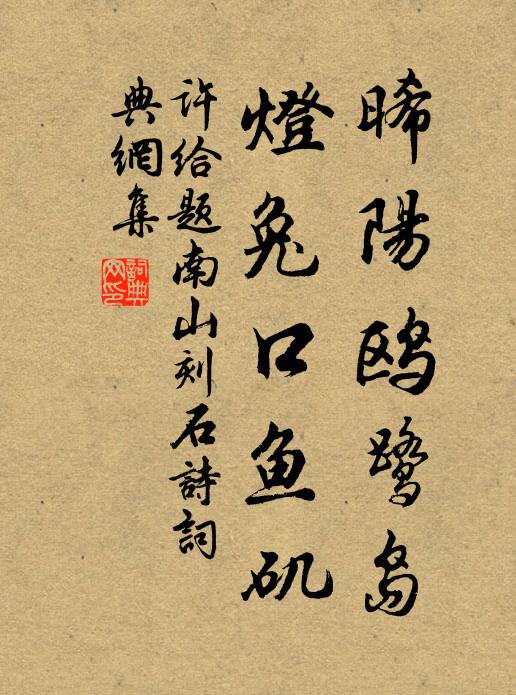 晞陽鸥鹭岛
燈兔口鱼矶
许给题南山刻石詩詞
典網集
詞典
网印